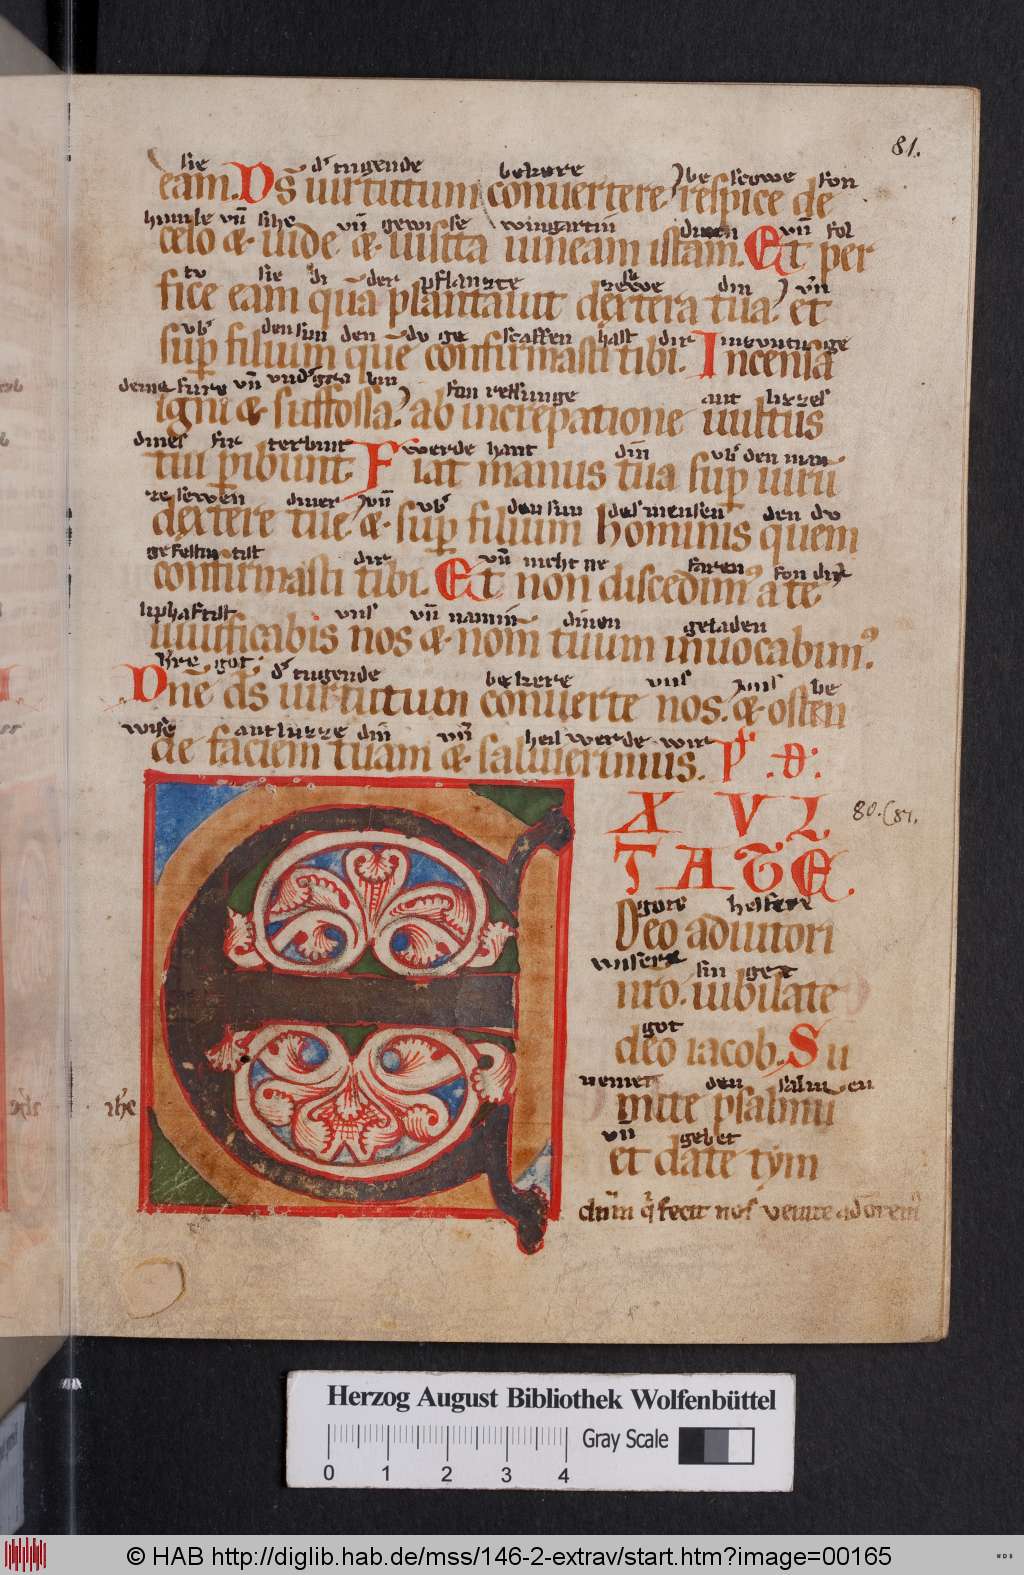 81.
sie d͛ tugende bekere be scowe fon
eam. Ds̄ uirtutum conuertere. respice de
himele vn̄ sihe vn̄ gewise wingartin disen vn̄ fol
celo & uide & uisita uineam istam. Et per
tu sie di der pflanzte zesewe din vn̄
fice eam quā plantauit dextera tua. et
vb͛ den sun den du ge scaffen hast dir
sup̱ filium quē confirmasti tibi. Incensa
fure vn̄ vnd͛gra bin fon refsunge ant luzzes
igni & suffossa. ab increpatione uultus
dines fir terbint werde hant din vb͛ den man
tui p̱ibunt. Fiat manus tua sup̱ uirū
zesewen diner vn̄ vb͛ den sun des mensen den du
dextere tue. & sup̱ filium hominis quem
gefestinotist dir vn̄ nieht ne fon dir
confirmasti tibi. Et non discedimꝰ a te
liphaftist vns vn̄ namin dinen getaden
uiuificabis nos & nom̄ tuum inuocabimꝰ.
herre got d͛ tugende bekere vns vns be
Dn̄e ds̄ uirtutum conuerte nos. & osten
wise antluzze din vn̄ heil werde wir
de faciem tuam & salui erimus. Ps̄ .D.
80. (81.
X V L
TATE
gote helfere
Deo adiutori
unsere sin get
nr̄o. iubilate
got
deo iacob. Su
nemet den salmen
mite psalmū
vn̄ gebet
et date tym
dn̄m q̇ fecit nos venite adorem͛
Herzog August Bibliothek Wolfenbüttel
Gray Scale
0 1 2 3 4
© HAB http://diglib.hab.de/mss/146-2-extrav/start.htm?image=00165